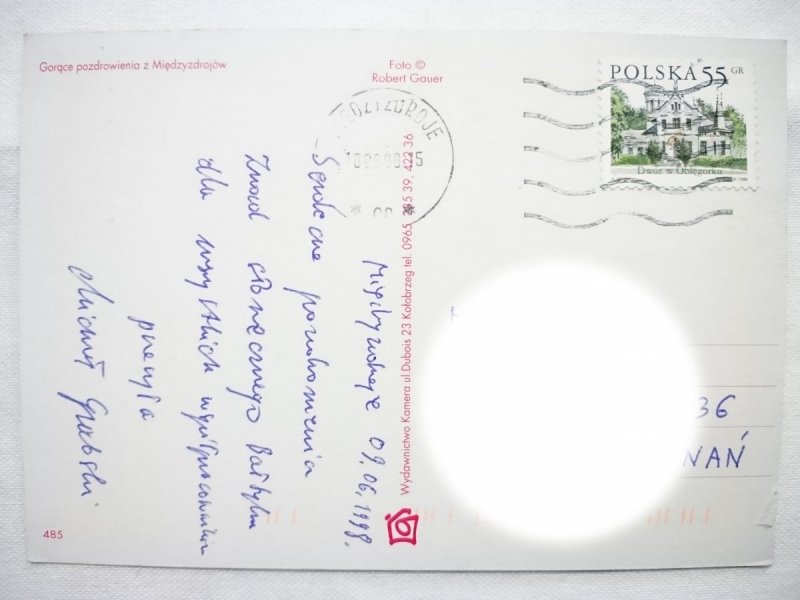 Gorące pozdrowienia z Międzyzdrojów
Foto ©
Robert Gauer
POLSKA 55 GR
Dwór w Oblęgorku
Międzyzdroje 09.06.1998.
Serdeczne pozdrowienia
Znad słonecznego Bałtyku
dla wszystkich współpracowników
przesyła
Michał Grabski
Wydawnictwo Kamera ul.Dubois 23 Kołobrzeg tel. 0965 285 39, 422 36
36
NAŃ
485